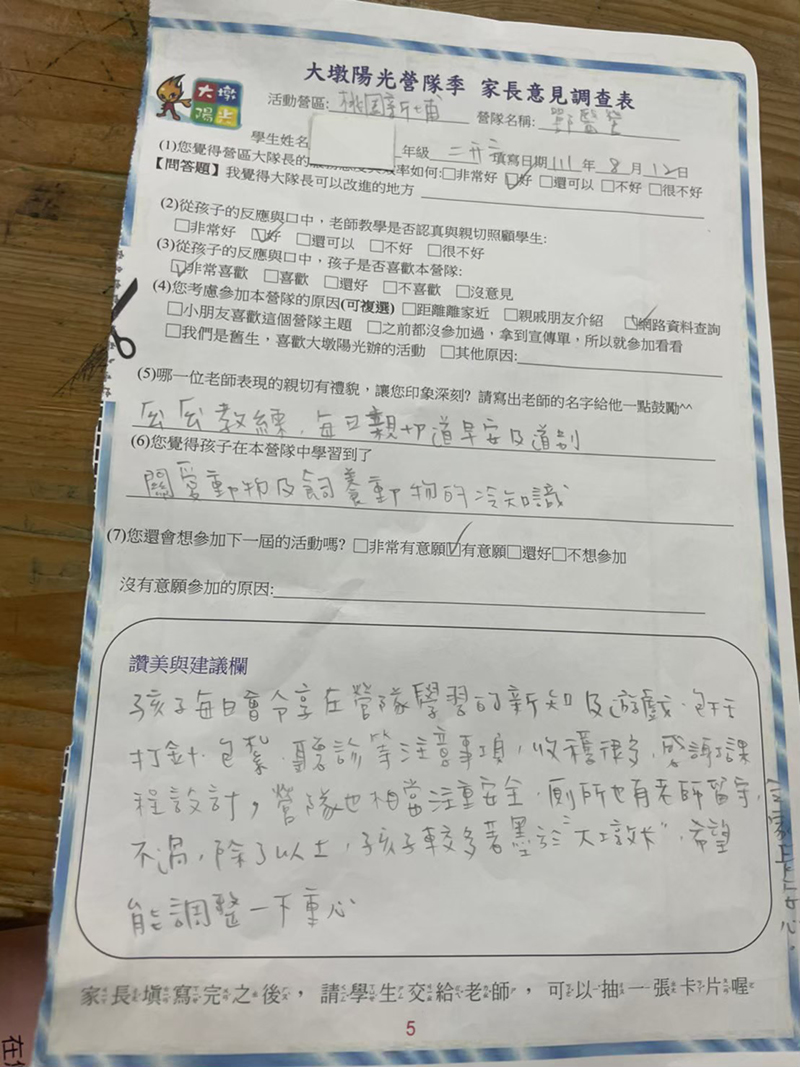 大墩陽光營隊季 家長意見調查表
大墩
陽光
活動營區: 桃園新埔 營隊名稱: 獸醫營
學生姓名 年級 二升三 填寫日期 111 年 8 月 12 日
(1)您覺得營區大隊長的服務態度與效率如何:□非常好 ☑好 □還可以 □不好 □很不好
【問答題】我覺得大隊長可以改進的地方
(2)從孩子的反應與口中，老師教學是否認真與親切照顧學生:
□非常好 ☑好 □還可以 □不好 □很不好
(3)從孩子的反應與口中，孩子是否喜歡本營隊:
☑非常喜歡 □喜歡 □還好 □不喜歡 □沒意見
(4)您考慮參加本營隊的原因(可複選) □距離離家近 □親戚朋友介紹 ☑網路資料查詢
□小朋友喜歡這個營隊主題 □之前都沒參加過，拿到宣傳單，所以就參加看看
□我們是舊生，喜歡大墩陽光辦的活動 □其他原因:
(5)哪一位老師表現的親切有禮貌，讓您印象深刻? 請寫出老師的名字給他一點鼓勵^^
教練，每日親切道早安及道別
(6)您覺得孩子在本營隊中學習到了
關愛動物及飼養動物的冷知識
(7)您還會想參加下一屆的活動嗎? □非常有意願☑有意願□還好□不想參加
沒有意願參加的原因:
讚美與建議欄
孩子每日會分享在營隊學習的新知及遊戲，包括
打針、包紮、聽診等注意事項，收穫很多，感謝課
程設計，營隊也相當注重安全，廁所也有老師留守，
令家長安心。
不過，除了以上，孩子較多著墨於"大墩幣"，希望
能調整一下重心
家長填寫完之後，請學生交給老師，可以抽一張卡片喔
5